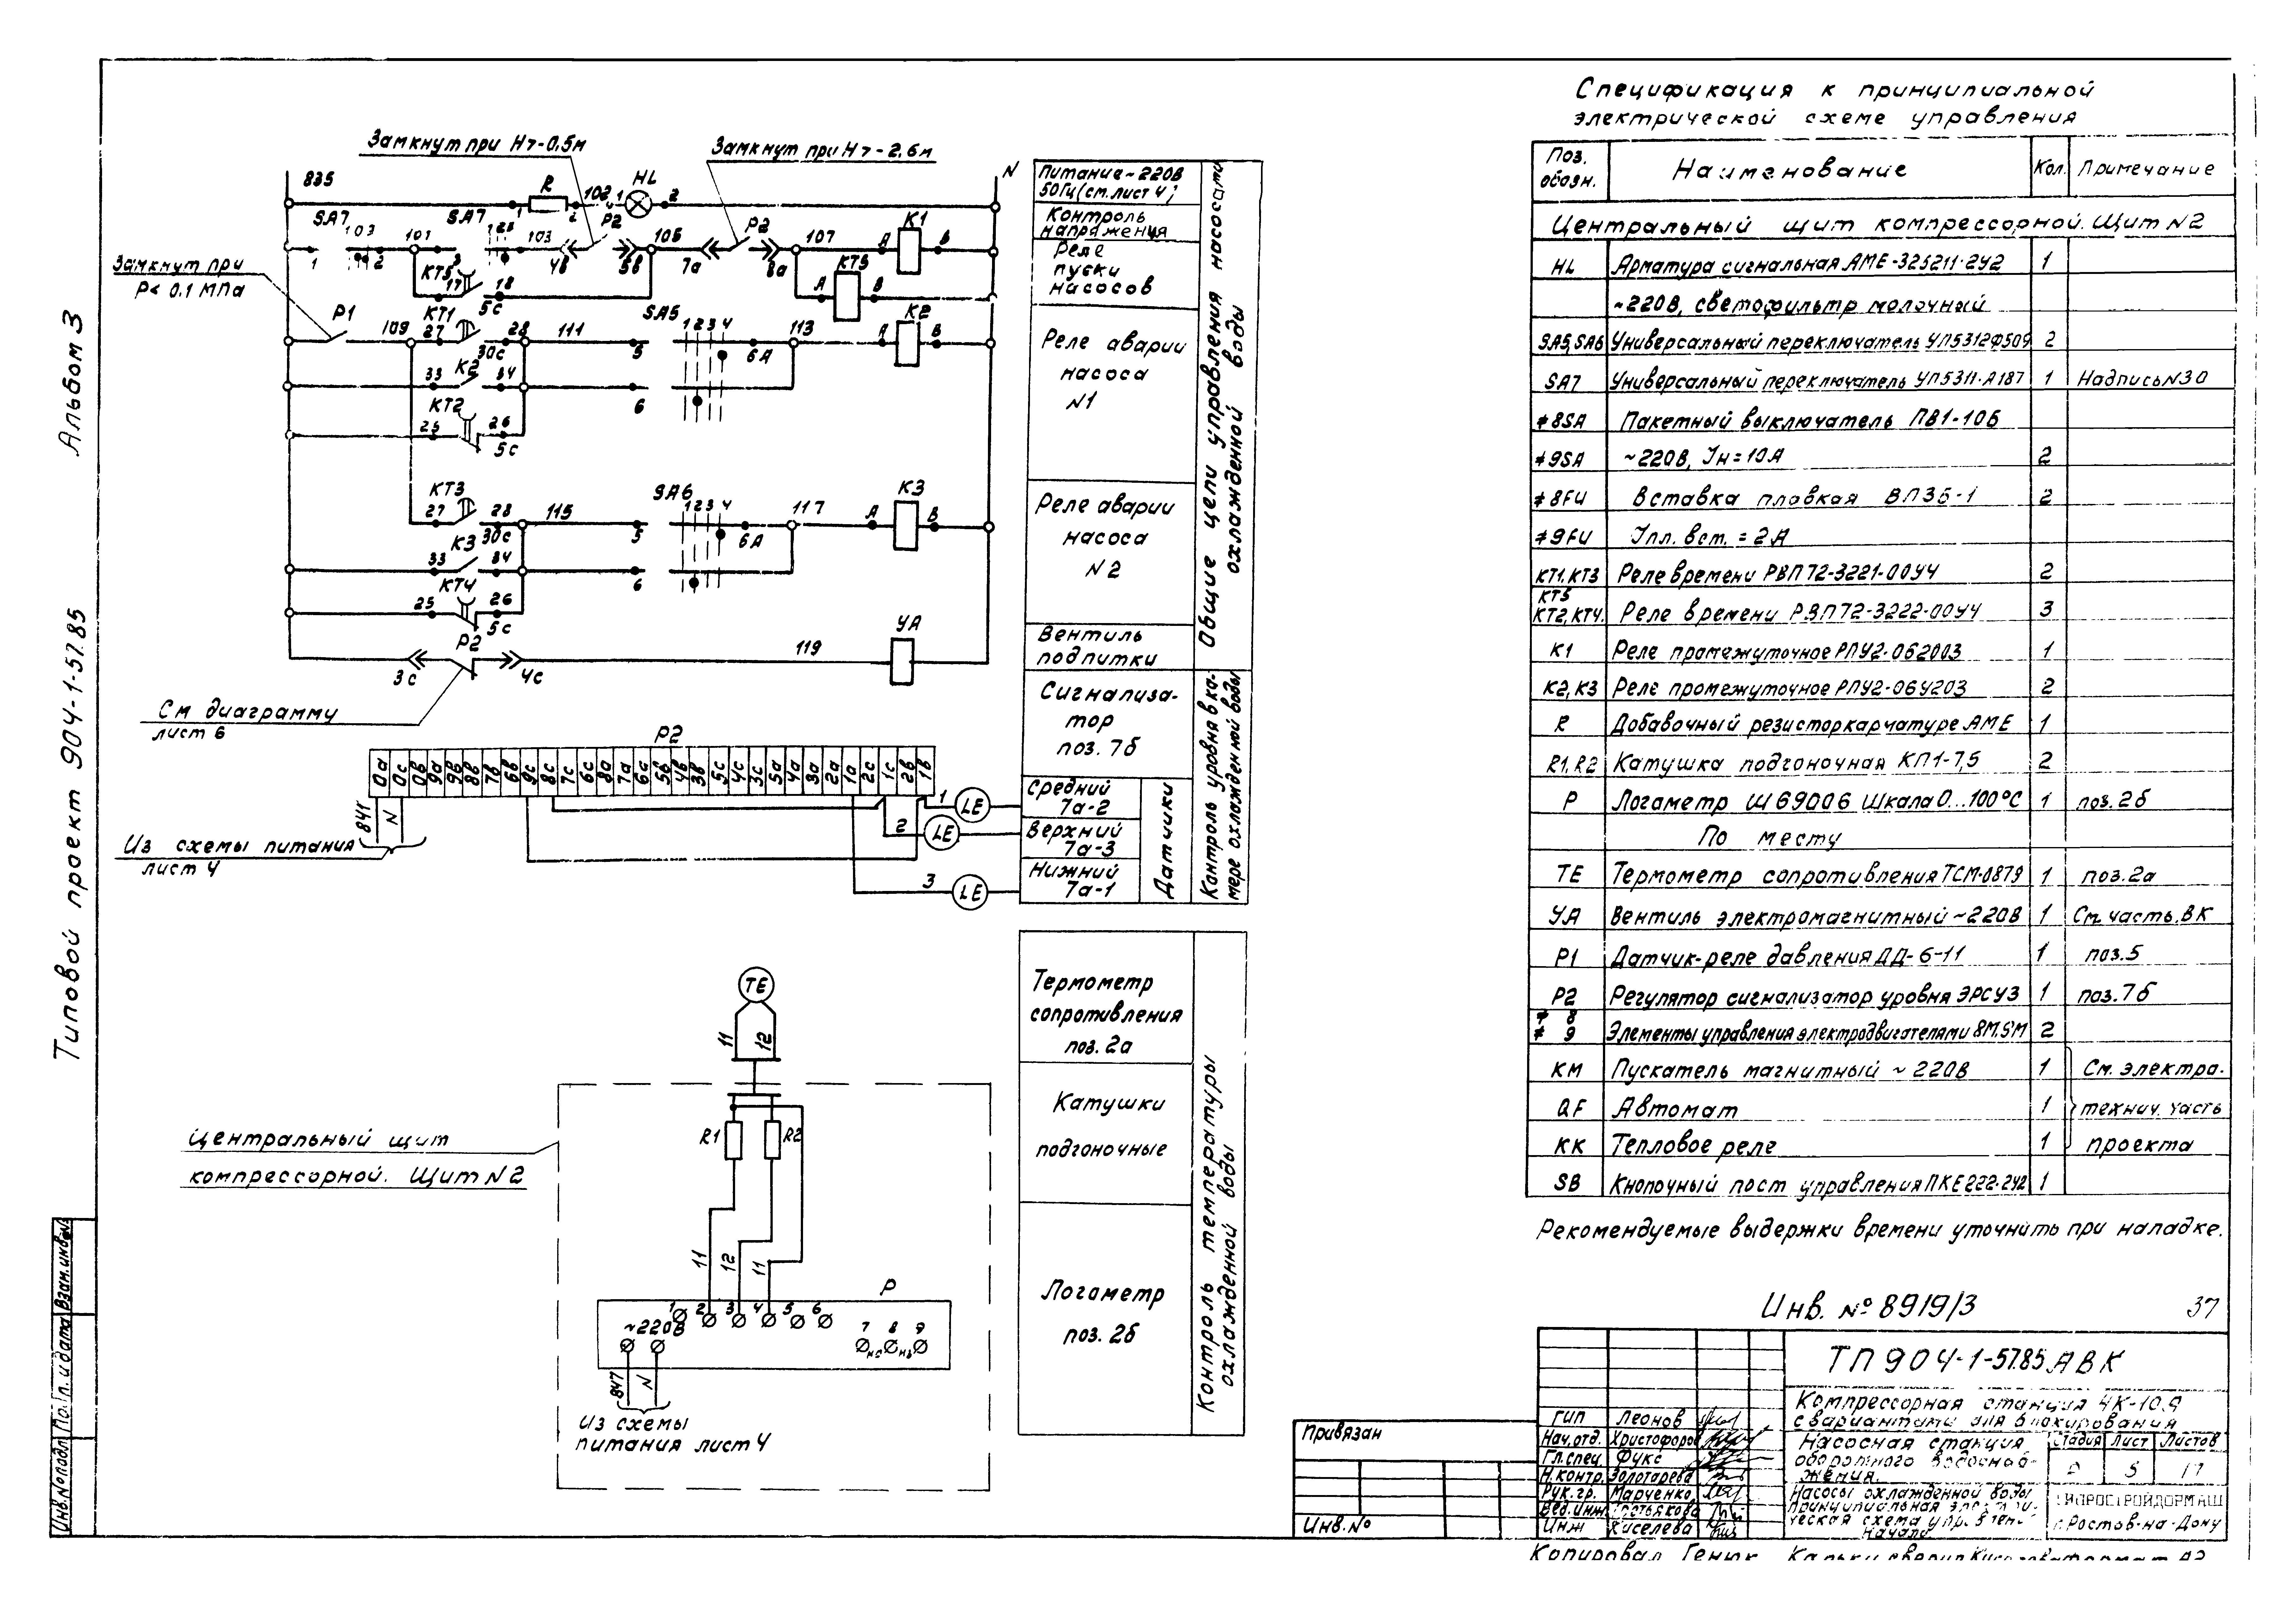 Альбом 3
Типовой проект 904-1-57.85
Взам.инв.№
Инв.№подл
Замкнут при Н>-0,5м
Замкнут при Н>-2,6м
835
N
R
1
102
1
HL
2
SA7
103
SA7
101
103
P2
106
P2
107
K1
1
2
3
4в
5в
7а
8а
А
В
КТ5
17
18
5с
КТ5
А
В
Замкнут при
Р< 0.1 МПа
Р1
109
КТ1
27
28
30с
111
SA5
1 2 3 4
5
6А
113
К2
А
В
К2
33
34
6
КТ2
25
26
5с
КТ3
27
28
30с
115
SA6
1 2 3 4
5
6А
117
К3
А
В
К3
33
34
6
КТ4
25
26
5с
Р2
3с
4с
119
УА
См диаграмму
лист 6
Р2
0а 0с 0в 9а 9в 8в 7в 6в 9с 8с 7с 6с 8а 7а 6а 5в 4в 3в 5с 4с 3с 5а 4а 3а 2а 1а 2с 1с 2в 1в
841
N
Из схемы питания
лист 4
1
LE
2
LE
3
LE
Питание ~220В
50Гц (см.лист 4)
Контроль
напряжения
Реле
пуски
насосов
Реле аварии
насоса
N1
Реле аварии
насоса
N2
Вентиль
подпитки
Общие цепи управления насосами
охлажденной воды
Сигнализа-
тор
поз. 7б
Средний
7а-2
Верхний
7а-3
Нижний
7а-1
Датчики
Контроль уровня в ка-
мере охлажденной воды
TE
11
12
Центральный щит
компрессорной. Щит N2
R1
R2
11
12
11
Р
1
2
3
4
5
6
~220В
7
8
9
847
N
Из схемы
питания лист 4
Термометр
сопротивления
поз. 2а
Катушки
подгоночные
Логаметр
поз. 2б
Контроль температуры
охлажденной воды
Спецификация к принципиальной
электрической схеме управления
Поз. обозн.
Наименование
Кол.
Примечание
Центральный щит компрессорной. Щит N2
HL Арматура сигнальная АМЕ-325211-2У2 1
~220В, светофильтр молочный
SA5,SA6 Универсальный переключатель УП5312Ф509 2
SA7 Универсальный переключатель УП5311-А187 1 Надпись N30
≠8SA Пакетный выключатель ПВ1-10Б
≠9SA ~220В, Iн=10А 2
≠8FU Вставка плавкая ВПЗБ-1 2
≠9FU Iпл. вст. = 2А
КТ1,КТ3 Реле времени РВП72-3221-00У4 2
КТ5
КТ2,КТ4. Реле времени РВП72-3222-00У4 3
К1 Реле промежуточное РПУ2-062003 1
К2,К3 Реле промежуточное РПУ2-06У203 2
R Добавочный резистор к арматуре АМЕ 1
R1,R2 Катушка подгоночная КП1-7,5 2
Р Логаметр Ш69006 Шкала 0...100°С 1 поз. 2б
По месту
TE Термометр сопротивления ТСМ-0879 1 поз. 2а
УА Вентиль электромагнитный ~220В 1 См. часть. ВК
Р1 Датчик-реле давления ДД-6-11 1 поз.5
Р2 Регулятор сигнализатор уровня ЭРСУ3 1 поз. 7б
≠ 8
≠ 9 Элементы управления электродвигателями 8М,9М 2
КМ Пускатель магнитный ~ 220В 1 См. электро-
QF Автомат 1 технич. часть
КК Тепловое реле 1 проекта
SB Кнопочный пост управления ПКЕ222-2У2 1
Рекомендуемые выдержки времени уточнить при наладке.
Инв. № 8919/3
37
Привязан
Инв.№
ТП 904-1-57.85 АВК
Компрессорная станция 4К-10А
с вариантами для блокирования
ГИП Леонов
Нач.отд. Христофоров
Гл.спец. Фукс
Н.контр. Золотарева
Рук.гр. Марченко
Вед.инж
Инж Киселева
Насосная станция
оборотного водоснаб-
жения.
Стадия Лист Листов
Р 5 17
Насосы охлажденной воды
Принципиальная электри-
ческая схема управления
Начало
ГИПРОСТРОЙДОРМАШ
г.Ростов-на-Дону
Копировал Генюк
Формат А2